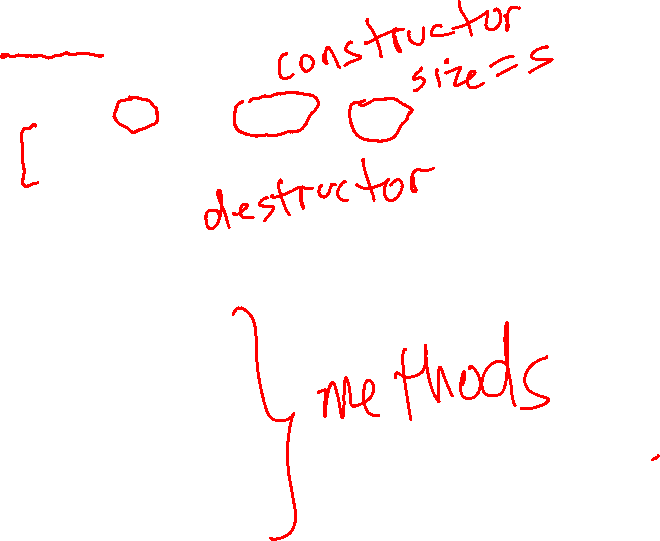 constructor
size=s
destructor
methods